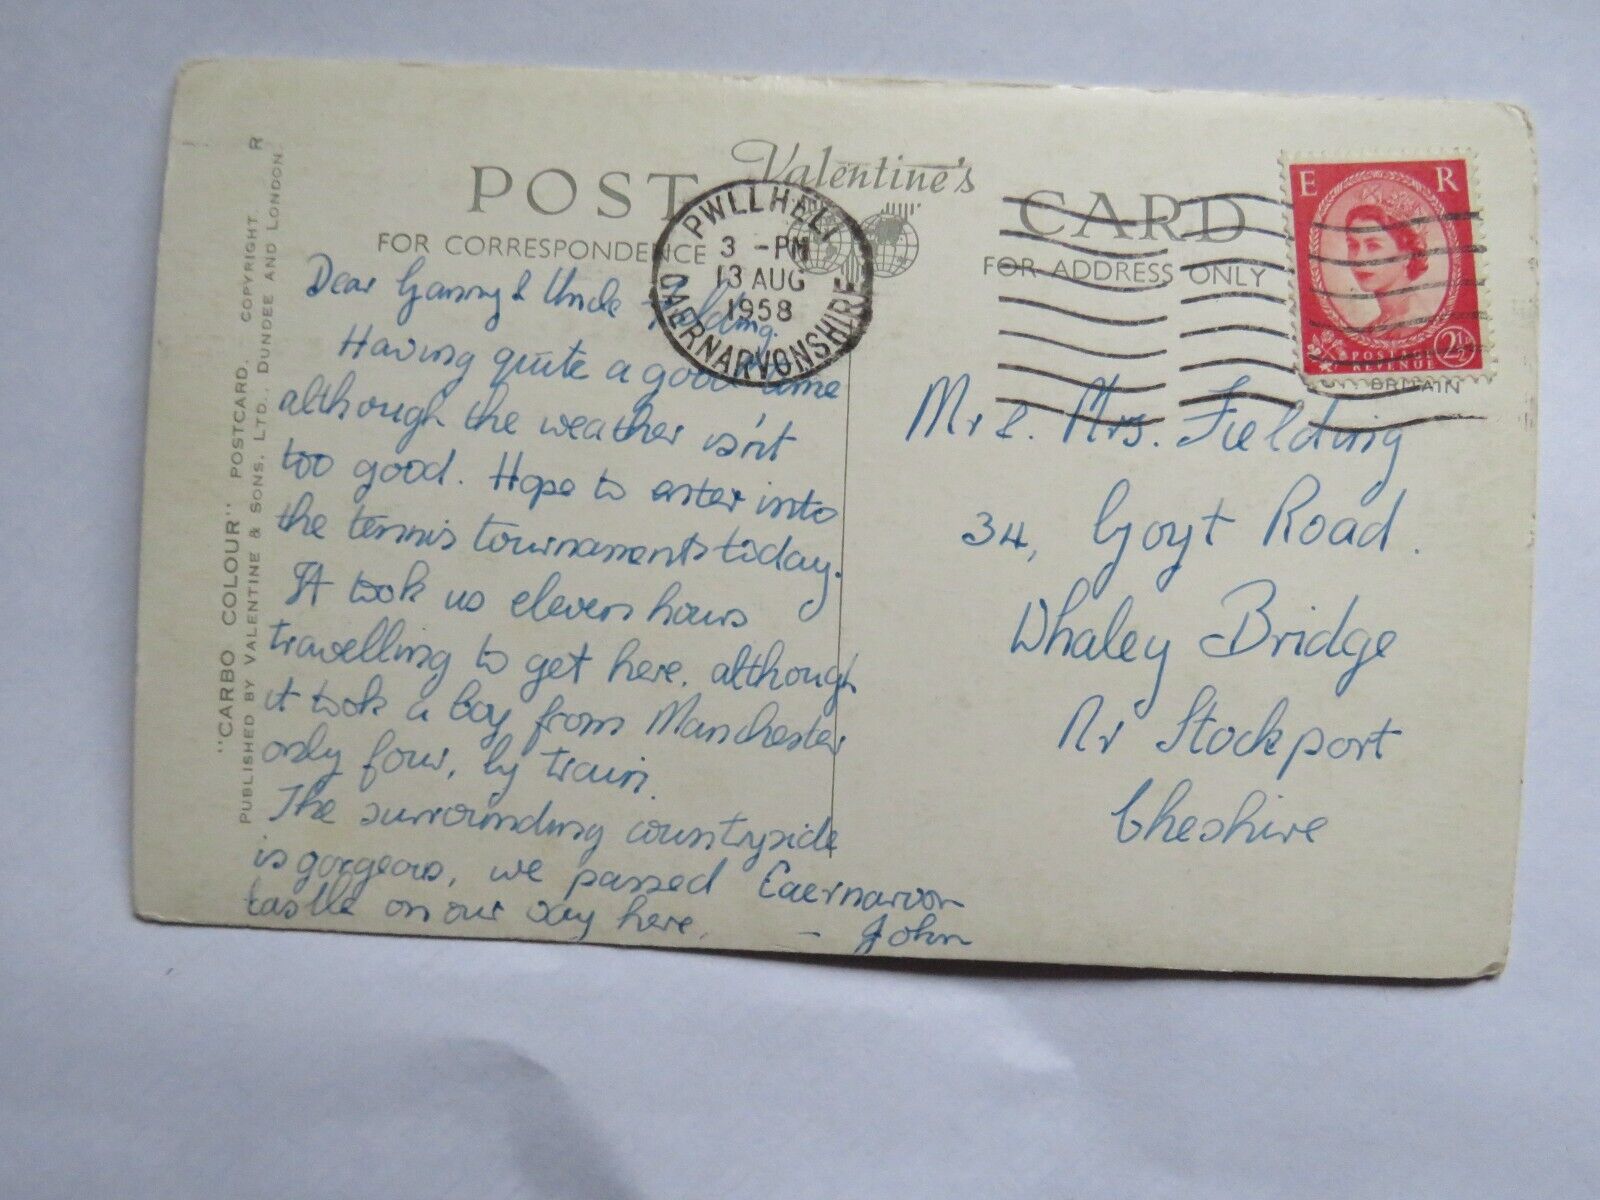 POST CARD
Valentine's
FOR CORRESPONDENCE
FOR ADDRESS ONLY
PWLLHELI
3 - PM
13 AUG
1958
CAERNARVONSHIRE
E R
POSTAGE
REVENUE
2½
BRITAIN
"CARBO COLOUR" POSTCARD. COPYRIGHT. R
PUBLISHED BY VALENTINE & SONS, LTD., DUNDEE AND LONDON.
Dear & Uncle Fielding.
Having quite a good time
although the weather isn't
too good. Hope to enter into
the tennis tournaments today.
It took us eleven hours
travelling to get here, although
it took a boy from Manchester
only four, by train.
The surrounding countryside
is gorgeous, we passed Caernarvon
Castle on our way here.
- John
Mr & Mrs. Fielding
34, Goyt Road.
Whaley Bridge
Nr Stockport
Cheshire